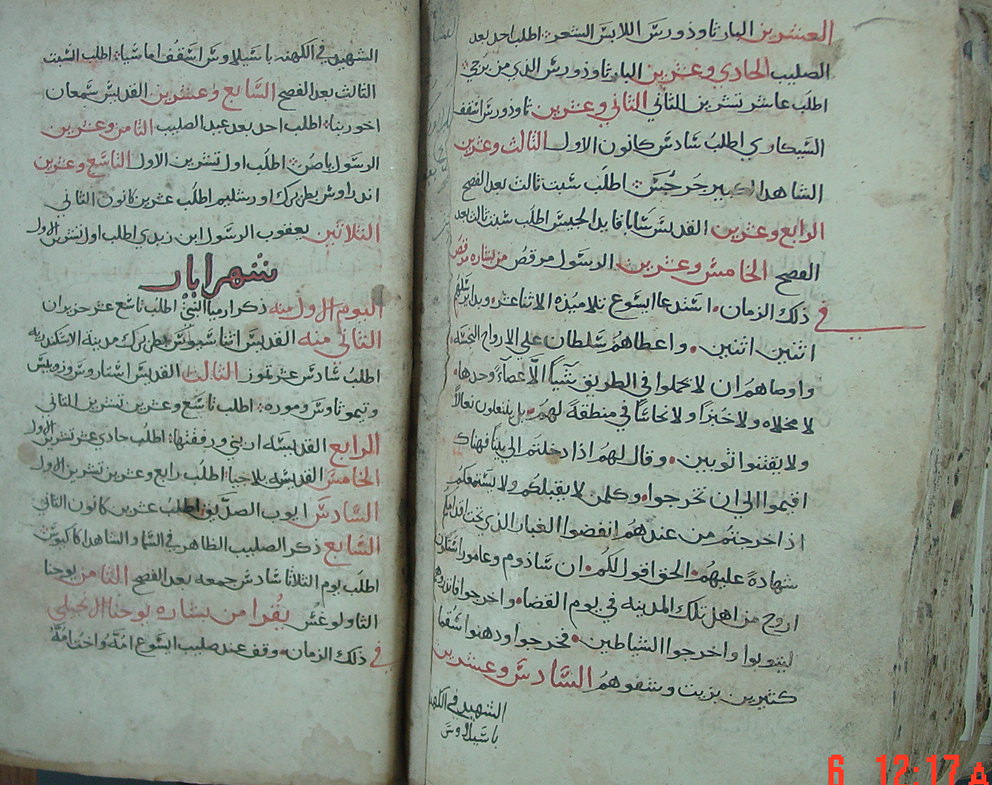 العشرين البار ثاوذورس اللابس الشعر: اطلب احد بعد
الصليب الحادي وعشرين البار ثاوذورس الذي من برجي:
اطلب عاشر تشرين الثاني الثاني وعشرين ثاوذورس اسقف
السيكاوي اطلب سادس كانون الاول الثالث وعشرين
الشاهد الكبير جرجس: اطلب سبت ثالث بعد الفصح
الرابع وعشرين القديس سابا قايد الجيس اطلب سبت ثالث بعد
الفصح الخامس وعشرين الرسول مرقص من بشاره مرقص
في ذلك الزمان، استدعا ايسوع تلاميذه الاثناعشر، وبدا يرسلهم
اثنين اثنين، واعطاهم سلطان علي الارواح النجسة،
واوصاهم ان لا يحملوا في الطريق شيًا الّا عصاءً وحدها،
لا مخلاه ولا خبزًا ولا نحاسًا في منطقة لهم، بل ينتعلون نعالًا
ولا يقتنوا ثوبين، وقال لهم اذا دخلتم الي بيتًا فهناك
اقيموا الي ان تخرجوا، وكلمن لا يقبلكم ولا يستمعكم
اذا خرجتم من عندهم انفضوا الغبار الذي تحت اقدامكم
شهادةً عليهم، الحق اقول لكم، ان ساذوم وعامورا ستكون
اروح من اهل تلك المدينه في يوم القضا، واخرجوا فانذروهم
ليتوبوا واخرجوا الشياطين، فخرجوا ودهنوا سُقما
كثيرين بزيت وشفوهم السادس وعشرين
الشهيد في الكهنه
باسيلاوس
الشهيد في الكهنه باسيلاوس اسقف اماسيا: اطلب السبت
الثالث بعد الفصح السابع وعشرين القديس سمعان
اخو ربنا: اطلب احد بعد عيد الصليب الثامن وعشرين
الرسول ياصن: اطلب اول تشرين الاول التاسع وعشرين
اندراوس بطريرك اورشليم اطلب عشرين كانون الثاني
الثلاثين يعقوب الرسول ابن زبدي اطلب اول تشرين الاول
شهر ايار
اليوم الاول منه ذكر ارميا النبي اطلب تاسع عشر حزيران
الثاني منه القديس اثناسيوس بطريرك مدينة الاسكندريه
اطلب سادس عشر تموز الثالث القديس استاروس وزوبيس
وتيموثاوس وموره: اطلب تاسع وعشرين تشرين الثاني
الرابع القديسه ايريني ورفقتها: اطلب حادي عشر تشرين الاول
الخامس القديسه بلاجيا اطلب رابع وعشرين تشرين الاول
السادس ايوب الصدّيق اطلب عشرين كانون الثاني
السابع ذكر الصليب الظاهر في السما والشاهد اكاكيوس:
اطلب يوم الثلاثا سادس جمعه بعد الفصح الثامن يوحنا
الثاولوغس يُقرا من بشاره يوحنا الانجيلي
في ذلك الزمان، وقف عند صليب ايسوع امّهُ واخت امّهُ
6 12:17 A